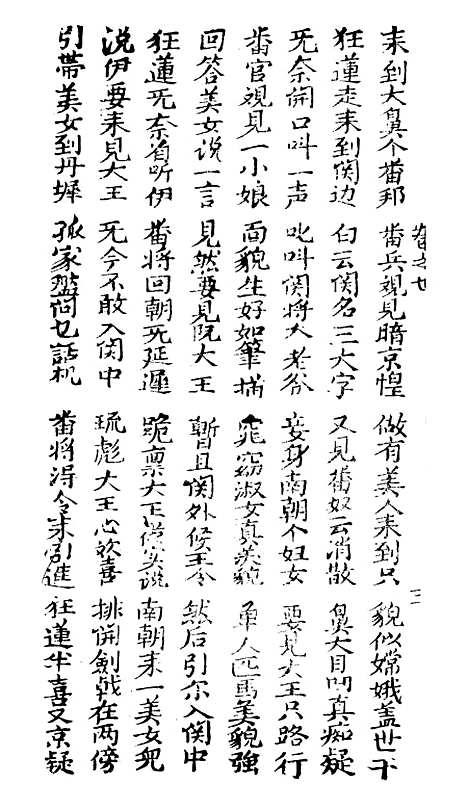 来到大鼻个番邦 番兵覌見暗京惶 做有美人来到只 貌似嫦娥盖世
狂蓮走来到関边 白云関名三大字 又見番奴云消散 鼻大目凹真痴疑
旡奈開口叫一声 叱叫関将大老爷 妾身南朝个妇女 要見大王只路行
番官視見一小娘 面貌生好如筆描 窕窈淑女真美貌 单人匹馬美貌強
回答美女说一言 見然要見阮大王 暫且関外候王令 然后引尔入関中
狂蓮旡奈着听伊 番将回朝旡延遲 跪禀大王従实说 南朝来一美女兒
说伊要来見大王 旡今不敢入関中 琉彪大王心欢喜 排開劍戟在两傍
引帶美女到丹墀 孤家盤问乜話机 番将得令来引進 狂蓮半喜又京疑